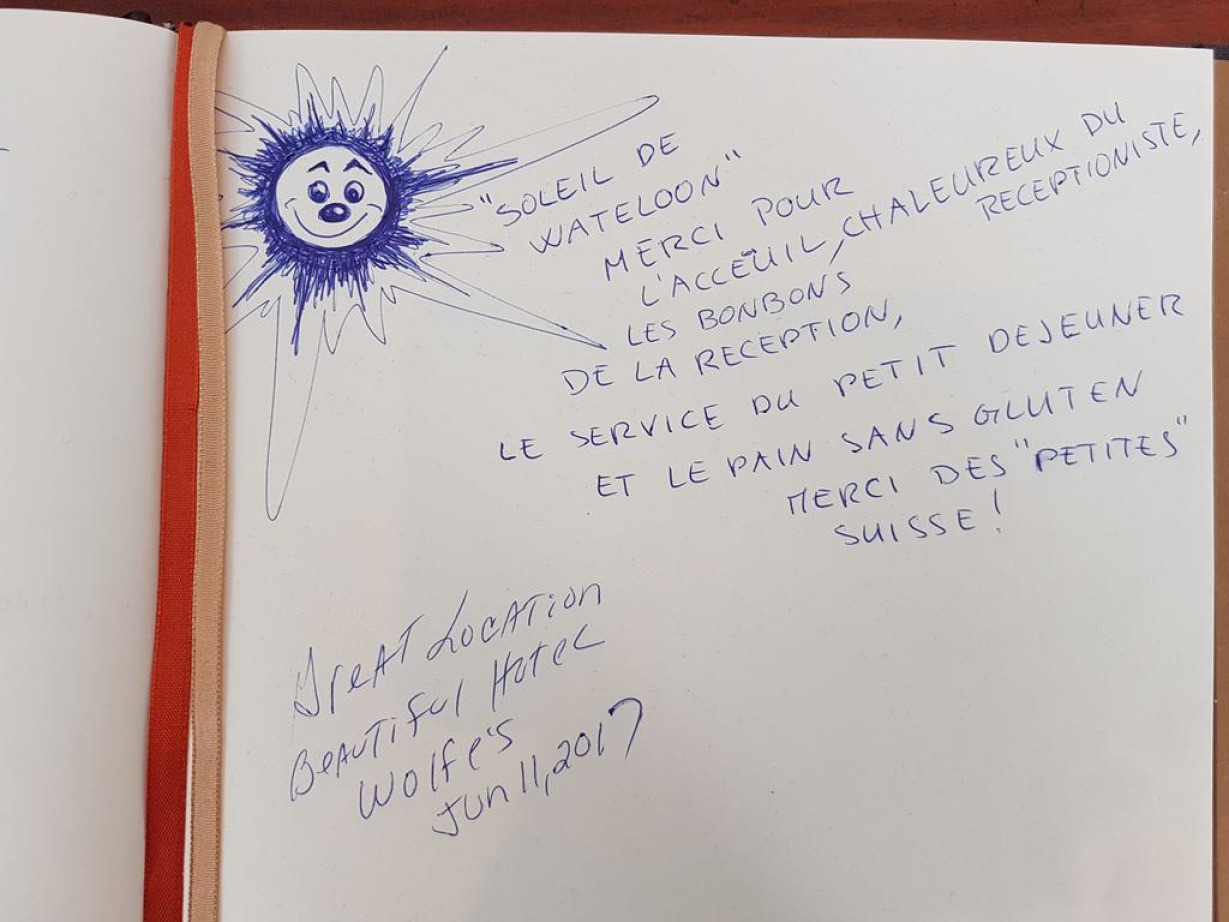 "SOLEIL DE
WATELOON"
MERCI POUR
L'ACCEUIL, CHALEUREUX DU
RECEPTIONISTE,
LES BONBONS
DE LA RECEPTION,
LE SERVICE DU PETIT DEJEUNER
ET LE PAIN SANS GLUTEN
MERCI DES "PETITES"
SUISSE!
Great Location
Beautiful Hotel
Wolfe's
Jun 11, 2017